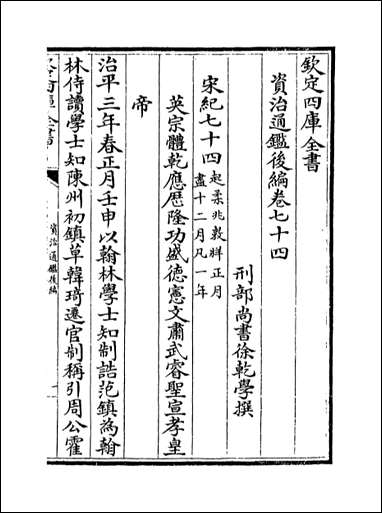 欽定四庫全書
資治通鑑後編卷七十四
刑部尚書徐乾學撰
宋紀七十四起柔兆敦牂正月盡十二月凡一年
英宗體乾應歷隆功盛德憲文肅武睿聖宣孝皇
帝
治平三年春正月壬申以翰林學士知制誥范鎮為翰
林侍讀學士知陳州初鎮草韓琦遷官制稱引周公霍
資治通鑑後編